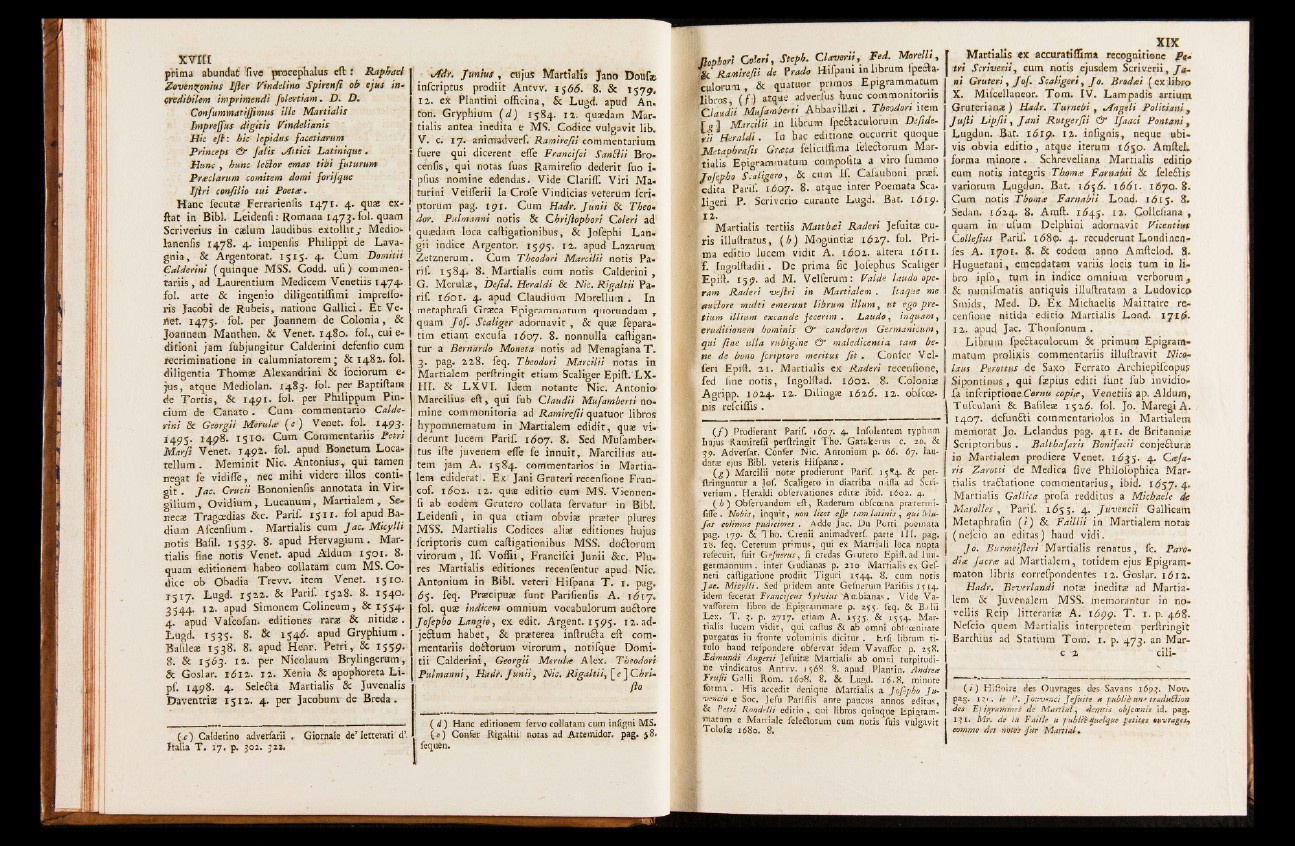 XVIII
prima abundat five procephalus eft: Raphael
Zovenzonius Ifter Vindelino Spirenfi ob ejus in-
credibilem imprimendi folertiam. D. D.
Confummatiffimus ille Martialis
Impreffus digitis Vindelianis
Hic eft: hic lepidus facetiarum
Princeps & falis Attici Latinique.
Hunc, hunc lector emas tibi futurum
Præclarum comitem domi forifque
Iftri confilio tui Poetæ.
Hanc fecutæ Ferrarienfis 1471. 4. quæ ex-
ftat in Bibl. Leidenfi: Romana 1473. fol. quam
Scriverius in cælum laudibus extollit; Medio-
lanenfis 1478. 4. impenfis Philippi de Lava-
gnia, & Argentorat. 1515. 4. Cum Domitii
Calderini (quinque MSS. Codd. ufi) commen-
tariis, ad Laurentium Medicem Venetiis 1474.
fol. arte & ingenio diligentiffimi impreffo-
ris Jacobi de Rubeis, natione Gallici. Et Ve-
net. 1475. fol. per Joannem de Colonia, &
Joannem Manthen. & Venet. 1480. fol., cui e-
ditioni jam fubjungitur Calderini defenfio cum
recriminatione in calumniatorem; & 1482. fol.
diligentia Thomæ Alexandrini & fociorum e-
jus, atque Mediolan. 1483. fol. per Baptiftam
de Tortis, & 1491. fol. per Philippum Pin-
cium de Canato. Cum commentario Calde-
rini & Georgii Merulæ (c) Venet. fol. 1493.
1495. 1498. 1510. Cum Commentariis Petri
Marfi Venet. 1492. fol. apud Bonetum Loca-
tellum. Meminit Nic. Antonius, qui tamen
negat fe vidiffe, nec mihi videre illos conti-
git. Jac. Crucii Bononienfis annotata in Vir-
gilium, Ovidium, Lucanum, Martialem, Se-
necæ Tragœdias &c. Parif. 1511. fol apud Ba-
dium Afcenfium. Martialis cum Jac. Micylli
notis Bafil. 1539. 8. apud Hervagium. Mar-
tialis fine notis Venet. apud Aldum 1501. 8.
quam editionem habeo collatam cum MS. Co-
dice ob Obadia Trevv. item Venet. 1510.
1517. Lugd. 1522. & Parif. 1528. 8. 1540.
3544. 12. apud Simonem Colineum, & 1554.
4. apud Vafcofan. editiones raræ & nitidæ.
Lugd. 1535. 8. & 1546. apud Gryphium.
Bafileæ 1538. 8. apud Henr. Petri, & 1559.
8. & 1563. 12. per Nicolaum Brylingerum,
& Goslar. 1612. 12. Xenia & apophoreta Li-
pf. 1498. 4. Selecta Martialis & Juvenalis
Daventriæ 1512. 4. per Jacobum de Breda.
(c) Calderino adverfarii. Giornale de' letterati d'
Italia T. 17. p. 302. 322.
Adr. Junius, cujus Martialis Jano Doufæ
infcriptus prodiit Antvv. 1566. 8. & 1579.
12. ex Plantini officina, & Lugd. apud An-
ton. Gryphium (d) 1584. 12. quædam Mar-
tialis antea inedita e MS. Codice vulgavit lib.
V. c. 17. animadverf. Ramirefii commentarium
fuere qui dicerent effe Francifci Sanctii Bro-
cenfis, qui notas fuas Ramirefio dederit fuo i-
pfius nomine edendas. Vide Clariff. Viri Ma-
turini Veifferii la Crofe Vindicias veterum fcri-
ptorum pag. 191. Cum Hadr. Junii & Theo-
dor. Pulmanni notis & Chriftophori Coleri ad
quædam loca caftigationibus, & Jofephi Lan-
gii indice Argentor. 1595. 12. apud Lazarum
Zetznerum. Cum Theodori Marcilii notis Pa-
rif. 1584. 8. Martialis cum notis Calderini,
G. Merulæ, Defid. Heraldi & Nic. Rigaltii Pa-
rif. 1601. 4. apud Claudium Morellum. In
metaphrafi Græca Epigrammatum quorundam,
quam Jof. Scaliger adornavit, & quæ fepara-
tim etiam excufa 1607. 8. nonnulla caftigan-
tur a Bernardo Moneta notis ad Menagiana T.
3. pag. 228. feq. Theodori Marcilii notas in
Martialem perftringit etiam Scaliger Epift. LX-
III. & LXVI. Idem notante Nic. Antonio
Marcilius eft, qui fub Claudii Mufamberti no-
mine commonitoria ad Ramirefii quatuor libros
hypomnematum in Martialem edidit, quæ vi-
derunt lucem Parif. 1607. 8. Sed Mufamber-
tus ifte juvenem effe fe innuit, Marcilius au-
tem jam A. 1584. commentarios in Martia-
lem ediderat. Ex Jani Gruteri recenfione Fran-
cof. 1602. 12. quæ editio cum MS. Viennen-
fi ab eodem Grutero collata fervatur in Bibl.
Leidenfi, in qua etiam obviæ præter plures
MSS. Martialis Codices aliæ editiones hujus
fcriptoris cum caftigationibus MSS. doctorum
virorum, If. Voffii, Francifci Junii &c. Plu-
res Martialis editiones recenfentur apud Nic.
Antonium in Bibl. veteri Hifpana T. 1. pag.
65. feq. Præcipuæ funt Parifienfis A. 1617.
fol. quæ indicem omnium vocabulorum auctore
Jofepho Langio, ex edit. Argent. 1595. 12. ad-
jectum habet, & præterea inftructa eft com-
mentariis doctorum virorum, notifque Domi-
tii Calderini, Georgii Merulæ Alex. Theodori
Pulmanni, Hadr. Junii, Nic. Rigaltii, [e] Chri-
fto
(d) Hanc editionem fervo collatam cum infigni MS.
(e) Confer Rigaltii notas ad Artemidor. pag. 58.
fequen.
XIX
ftophori Coleri, Steph. Claverii, Fed. Morelli,
& Ramirefii de Prado Hifpani in librum fpecta-
culorum, & quatuor primos Epigrammatum
libros, (f) atque adverfus hunc commonitoriis
Claudii Mufamberti Abbavillæi. Theodori item
[g] Marcilii in librum fpectaculorum Defide-
rii Heraldi. In hac editione occurrit quoque
Metaphrafis Græca feliciffima felectorum Mar-
tialis Epigrammatum compofita a viro fummo
Jofepho Scaligero, & cum If. Cafauboni præf.
edita Parif. 1607. 8. atque inter Poemata Sca-
ligeri P. Scriverio curante Lugd. Bat. 1619.
12.
Martialis tertiis Matthæi Raderi Jefuitæ cu-
ris illuftratus, (h) Moguntiæ 1627. fol. Pri-
ma editio lucem vidit A. 1602. altera 1611.
f. Ingolftadii. De prima fic Jofephus Scaliger
Epift. 159. ad M. Velferum: Valde laudo ope-
ram Raderi veftri in Martialem. Itaque me
auctore multi emerunt librum illum, ut ego pre-
tium illium excande fecerim. Laudo, inquam,
eruditionem hominis & candorem Germanicum,
qui fine ulla rubigine & maledicentia tam be-
ne de bono fcriptore meritus fit. Confer Vel-
feri Epift. 21. Martialis ex Raderi recenfione,
fed fine notis, Ingolftad. 1602. 8. Coloniæ
Agripp. 1024. 12. Dilingæ 1626. 12. obfcœ-
nis refciffis.
(f) Prodierant Parif. 1607. 4. Infolentem typhum
hujus Ramirefii perftringit Tho. Gatakerus c. 20. &
39. Adverfar. Confer Nic. Antonium p. 66. 67. lau-
datæ ejus Bibl. veteris Hifpanæ.
(g) Marcilii notæ prodierunt Parif. 1584. & per-
ftringuntur a Jof. Scaligero in diatriba miffa ad Scri-
verium. Heraldi obfervationes editæ ibid. 1602. 4.
(h) Obfervandum eft, Raderum obfcœna prætermi-
fiffe. Nobis, inquit, non licet effe tam latinis, qui Mu-
fas colimus pudiciores. Adde Jac. Du Porti poemata
pag. 179. & Tho. Crenii animadverf. parte III. pag.
18. feq. Ceterum primus, qui ex Martiali loca nupta
refecuit, fuit Gefnerus, fi credas Grutero Epift. ad Jun-
germannum. inter Gudianas p. 210 Martialis ex Gef-
neri caftigatione prodiit Tiguri 1544. 8. cum notis
Jac. Micylli. Sed pridem ante Gefnerum Parifiis 1514.
idem fecerat Francifcus Sylvius Ambianas. Vide Va-
vafforem libro de Epigrammate p. 255. feq. & Bælii
Lex. T. 3. p. 2717. etiam A. 1535. & 1554. Mar-
tialis lucem vidit, qui caftus & ab omni obfcœnitate
purgatus in fronte voluminis dicitur. Etfi librum ti-
tulo haud refpondere obfervat idem Vavaffor p. 258.
Edmundi Augerii Jefuitæ Martialis ab omni turpitudi-
ne vindicatus Antvv. 1568 8. apud Plantin. Andreæ
Frufii Galli Rom. 1608. 8. & Lugd. 1618. minore
forma. His accedit denique Martialis a Jofepho Ju-
vencio e Soc. Jefu Parifiis ante paucos annos editus,
& Petri Rondelli editio, qui libros quinque Epigram-
matum e Martiale felectorum cum notis fuis vulgavit
Tolofæ 1680. 8.
Martialis ex accuratiffima recognitione Pe-
tri Scriverii, cum notis ejusdem Scriverii, Ja-
ni Gruteri, Jof. Scaligeri, Jo. Brodæi (ex libro
X. Mifcellaneor. Tom. IV. Lampadis artium
Gruterianæ) Hadr. Turnebi, Angeli Politiani,
Jufti Lipfii, Jani Rutgerfii & Ifaaci Pontani,
Lugdun. Bat. 1619. 12. infignis, neque ubi-
vis obvia editio, atque iterum 1650. Amftel.
forma minore. Schreveliana Martialis editio
cum notis integris Thomæ Farnabii & felectis
variorum Lugdun. Bat. 1656. 1661. 1670. 8.
Cum notis Thomæ Farnabii Lond. 1615. 8.
Sedan. 1624. 8. Amft. 1645. 12. Colleftana,
quam in ufum Delphini adornavit Vicentius
Collefius Parif. 1680. 4. recuderunt Londinen-
fes A. 1701. 8. & eodem anno Amftelod. 8.
Huguetani, emendatam variis locis tum in li-
bro ipfo, tum in indice omnium verborum,
& numifmatis antiquis illuftratam a Ludovico
Smids, Med. D. Ex Michaelis Maittaire re-
cenfione nitida editio Martialis Lond. 1716.
12. apud Jac. Thonfonum.
Librum fpectaculorum & primum Epigram-
matum prolixis commentariis illuftravit Nico-
laus Perottus de Saxo Ferrato Archiepifcopus
Sipontinus, qui fæpius editi funt fub invidio-
fa infcriptione Cornu copiæ, Venetiis ap. Aldum,
Tufculani & Bafileæ 1526. fol. Jo. Maregi A.
1407. defuncti commentariolos in Martialem
memorat Jo. Lelandus pag. 411. de Britanniæ
Scriptoribus. Balthafaris Bonifacii conjecturæ
in Martialem prodiere Venet. 1635. 4. Cæfa-
ris Zarotti de Medica five Philofophica Mar-
tialis tractatione commentarius, ibid. 1657. 4.
Martialis Gallica profa redditus a Michaele de
Marolles, Parif. 1655. 4. Juvencii Gallicam
Metaphrafin (i) & Faillii in Martialem notas
(nefcio an editas) haud vidi.
Jo. Burmeifteri Martialis renatus, fc. Paro-
diæ facræ ad Martialem, totidem ejus Epigram-
maton libris correfpondentes 12. Goslar. 1612.
Hadr. Beverlandi notæ ineditæ ad Martia-
lem & Juvenalem MSS. memorantur in no-
vellis Reip litterariæ A. 1699. T. 1. p. 468.
Nefcio quem Martialis interpretem perftringit
Barthius ad Statium Tom. 1. p. 473. an Mar-
c 2 cili-
(i) Hiftoire des Ouvrages des Savans 1693. Nov.
pag. 131. le P. Jouvenci Jefuite a publié une traduction
des Epigrammes de Martial, demtis obfcœnis id. pag.
131. Mr. de la Faille a publié quelque petites ouvrages,
comme des notes fur Martial.